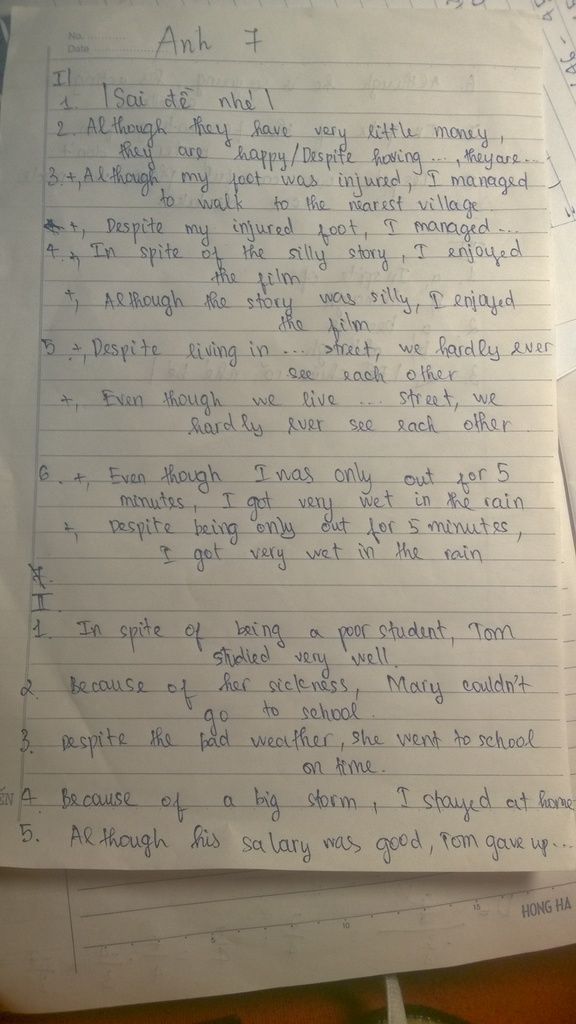 No.
Date
Anh 7
I|
1. | Sai đề nhé |
2. Although they have very little money,
they are happy/Despite having ..., they are...
3. +, Although my foot was injured, I managed
to walk to the nearest village.
+, Despite my injured foot, I managed ...
4. +, In spite of the silly story, I enjoyed
the film
+, Although the story was silly, I enjoyed
the film
5 +, Despite living in ... street, we hardly ever
see each other
+, Even though we live ... street, we
hardly ever see each other.
6. +, Even though I was only out for 5
minutes, I got very wet in the rain
+, Despite being only out for 5 minutes,
I got very wet in the rain
II.
1. In spite of being a poor student, Tom
studied very well.
2. Because of her sickness, Mary couldn't
go to school.
3. Despite the bad weather, she went to school
on time.
4. Because of a big storm, I stayed at home
5. Although his salary was good, Tom gave up...
5 10 15
HONG HA